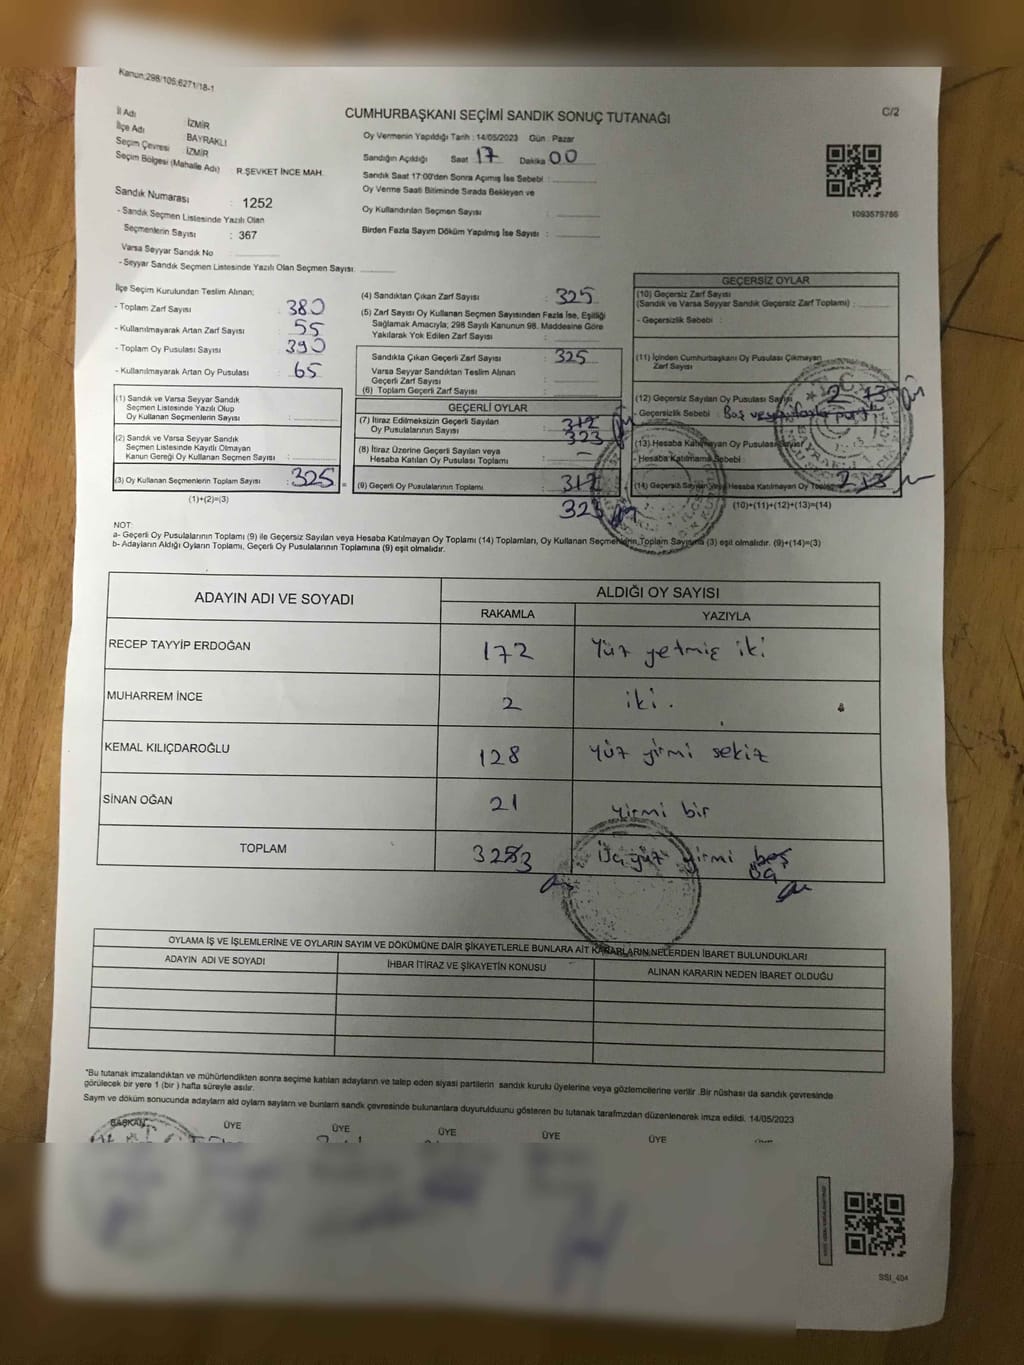 Kanun:298/105;6271/18-1
CUMHURBAŞKANI SEÇİMİ SANDIK SONUÇ TUTANAĞI
C/2
İl Adı İZMİR
İlçe Adı BAYRAKLI
Seçim Çevresi İZMİR
Seçim Bölgesi (Mahalle Adı) R.ŞEVKET İNCE MAH.
Sandık Numarası : 1252
- Sandık Seçmen Listesinde Yazılı Olan
Seçmenlerin Sayısı : 367
Varsa Seyyar Sandık No
- Seyyar Sandık Seçmen Listesinde Yazılı Olan Seçmen Sayısı:
Oy Vermenin Yapıldığı Tarih : 14/05/2023 Gün : Pazar
Sandığın Açıldığı Saat 17 Dakika 00
Sandık Saat 17:00'den Sonra Açımış İse Sebebi :
Oy Verme Saati Bitiminde Sırada Bekleyen ve
Oy Kullandırılan Seçmen Sayısı :
Birden Fazla Sayım Döküm Yapılmış İse Sayısı :
1093579786
İlçe Seçim Kurulundan Teslim Alınan;
- Toplam Zarf Sayısı : 380
- Kullanılmayarak Artan Zarf Sayısı : 55
- Toplam Oy Pusulası Sayısı : 390
- Kullanılmayarak Artan Oy Pusulası : 65
(1) Sandık ve Varsa Seyyar Sandık
Seçmen Listesinde Yazılı Olup
Oy Kullanan Seçmenlerin Sayısı :
(2) Sandık ve Varsa Seyyar Sandık
Seçmen Listesinde Kayıtlı Olmayan
Kanun Gereği Oy Kullanan Seçmen Sayısı :
(3) Oy Kullanan Seçmenlerin Toplam Sayısı : 325
(1)+(2)=(3)
(4) Sandıktan Çıkan Zarf Sayısı : 325
(5) Zarf Sayısı Oy Kullanan Seçmen Sayısından Fazla İse, Eşitliği
Sağlamak Amacıyla; 298 Sayılı Kanunun 98. Maddesine Göre
Yakılarak Yok Edilen Zarf Sayısı :
Sandıkta Çıkan Geçerli Zarf Sayısı : 325
Varsa Seyyar Sandıktan Teslim Alınan
Geçerli Zarf Sayısı :
(6) Toplam Geçerli Zarf Sayısı :
GEÇERLİ OYLAR
(7) İtiraz Edilmeksizin Geçerli Sayılan
Oy Pusulalarının Sayısı : 312
323
(8) İtiraz Üzerine Geçerli Sayılan veya
Hesaba Katılan Oy Pusulası Toplamı : -
(9) Geçerli Oy Pusulalarının Toplamı : 312
323
GEÇERSİZ OYLAR
(10) Geçersiz Zarf Sayısı
(Sandık ve Varsa Seyyar Sandık Geçersiz Zarf Toplamı) :
- Geçersizlik Sebebi :
(11) İçinden Cumhurbaşkanı Oy Pusulası Çıkmayan
Zarf Sayısı
(12) Geçersiz Sayılan Oy Pusulası Sayısı 2 13
- Geçersizlik Sebebi : Boş veya
(13) Hesaba Katılmayan Oy Pusulası Sayısı
- Hesaba Katılmama Sebebi :
(14) Geçersiz Sayılan veya Hesaba Katılmayan Oy Toplamı 2 13
(10)+(11)+(12)+(13)=(14)
NOT:
a- Geçerli Oy Pusulalarının Toplamı (9) ile Geçersiz Sayılan veya Hesaba Katılmayan Oy Toplamı (14) Toplamları, Oy Kullanan Seçmenlerin Toplam Sayısına (3) eşit olmalıdır. (9)+(14)=(3)
b- Adayların Aldığı Oyların Toplamı, Geçerli Oy Pusulalarının Toplamına (9) eşit olmalıdır.
ADAYIN ADI VE SOYADI ALDIĞI OY SAYISI
RAKAMLA YAZIYLA
RECEP TAYYİP ERDOĞAN 172 Yüz yetmiş iki
MUHARREM İNCE 2 iki.
KEMAL KILIÇDAROĞLU 128 Yüz yirmi sekiz
SİNAN OĞAN 21 yirmi bir
TOPLAM 3253 Üç yüz yirmi beş
üç
OYLAMA İŞ VE İŞLEMLERİNE VE OYLARIN SAYIM VE DÖKÜMÜNE DAİR ŞİKAYETLERLE BUNLARA AİT KARARLARIN NELERDEN İBARET BULUNDUKLARI
ADAYIN ADI VE SOYADI İHBAR İTİRAZ VE ŞİKAYETİN KONUSU ALINAN KARARIN NEDEN İBARET OLDUĞU
*Bu tutanak imzalandıktan ve mühürlendikten sonra seçime katılan adayların ve talep eden siyasi partilerin sandık kurulu üyelerine veya gözlemcilerine verilir .Bir nüshası da sandık çevresinde
görülecek bir yere 1 (bir ) hafta süreyle asılır.
Saym ve döküm sonucunda adaylarn ald oylarn saylarn ve bunlarn sandk çevresinde bulunanlara duyurulduunu gösteren bu tutanak tarafmzdan düzenlenerek imza edildi. 14/05/2023
BAŞKAN ÜYE ÜYE ÜYE ÜYE ÜYE
SSI_404